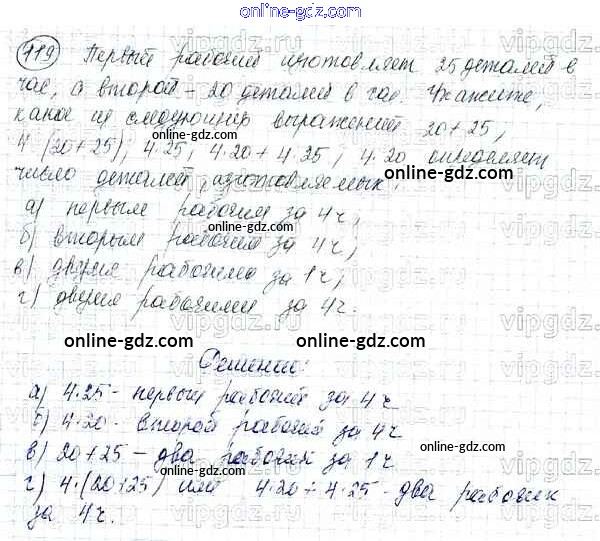 online-gdz.com
119 Первый рабочий изготовляет 25 деталей в
час, а второй - 20 деталей в час. Укажите,
какое из следующих выражений 20+25,
4·(20+25), 4·25, 4·20+4·25, 4·20 определяет
число деталей, изготовляемых:
а) первым рабочим за 4ч,
б) вторым рабочим за 4ч;
в) двумя рабочими за 1ч;
г) двумя рабочими за 4ч.
online-gdz.com online-gdz.com online-gdz.com
Решение:
а) 4·25 - первый рабочий за 4ч
б) 4·20 - второй рабочий за 4ч
в) 20+25 - два рабочих за 1ч
г) 4·(20+25) или 4·20+4·25 - два рабочих
за 4ч.